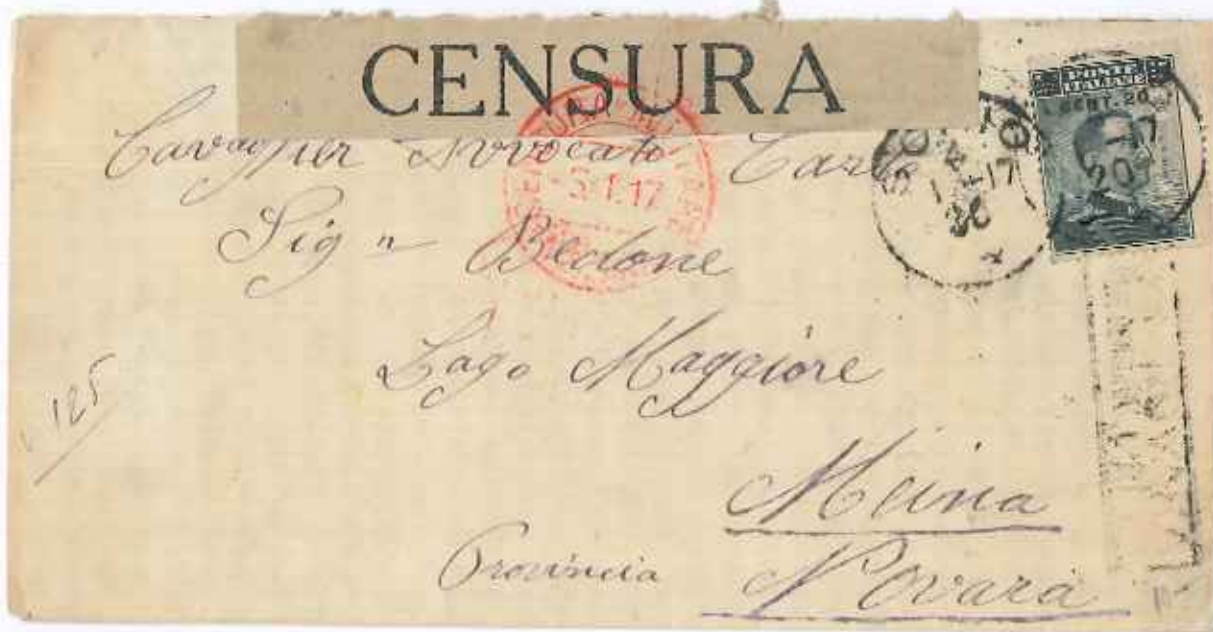 CENSURA
POSTE
ITALIANE
CENT. 20
Cavaglier Avvocato Carlo
3.1.17
Sig n Bedone
Lago Maggiore
125
Meina
Provincia Novara